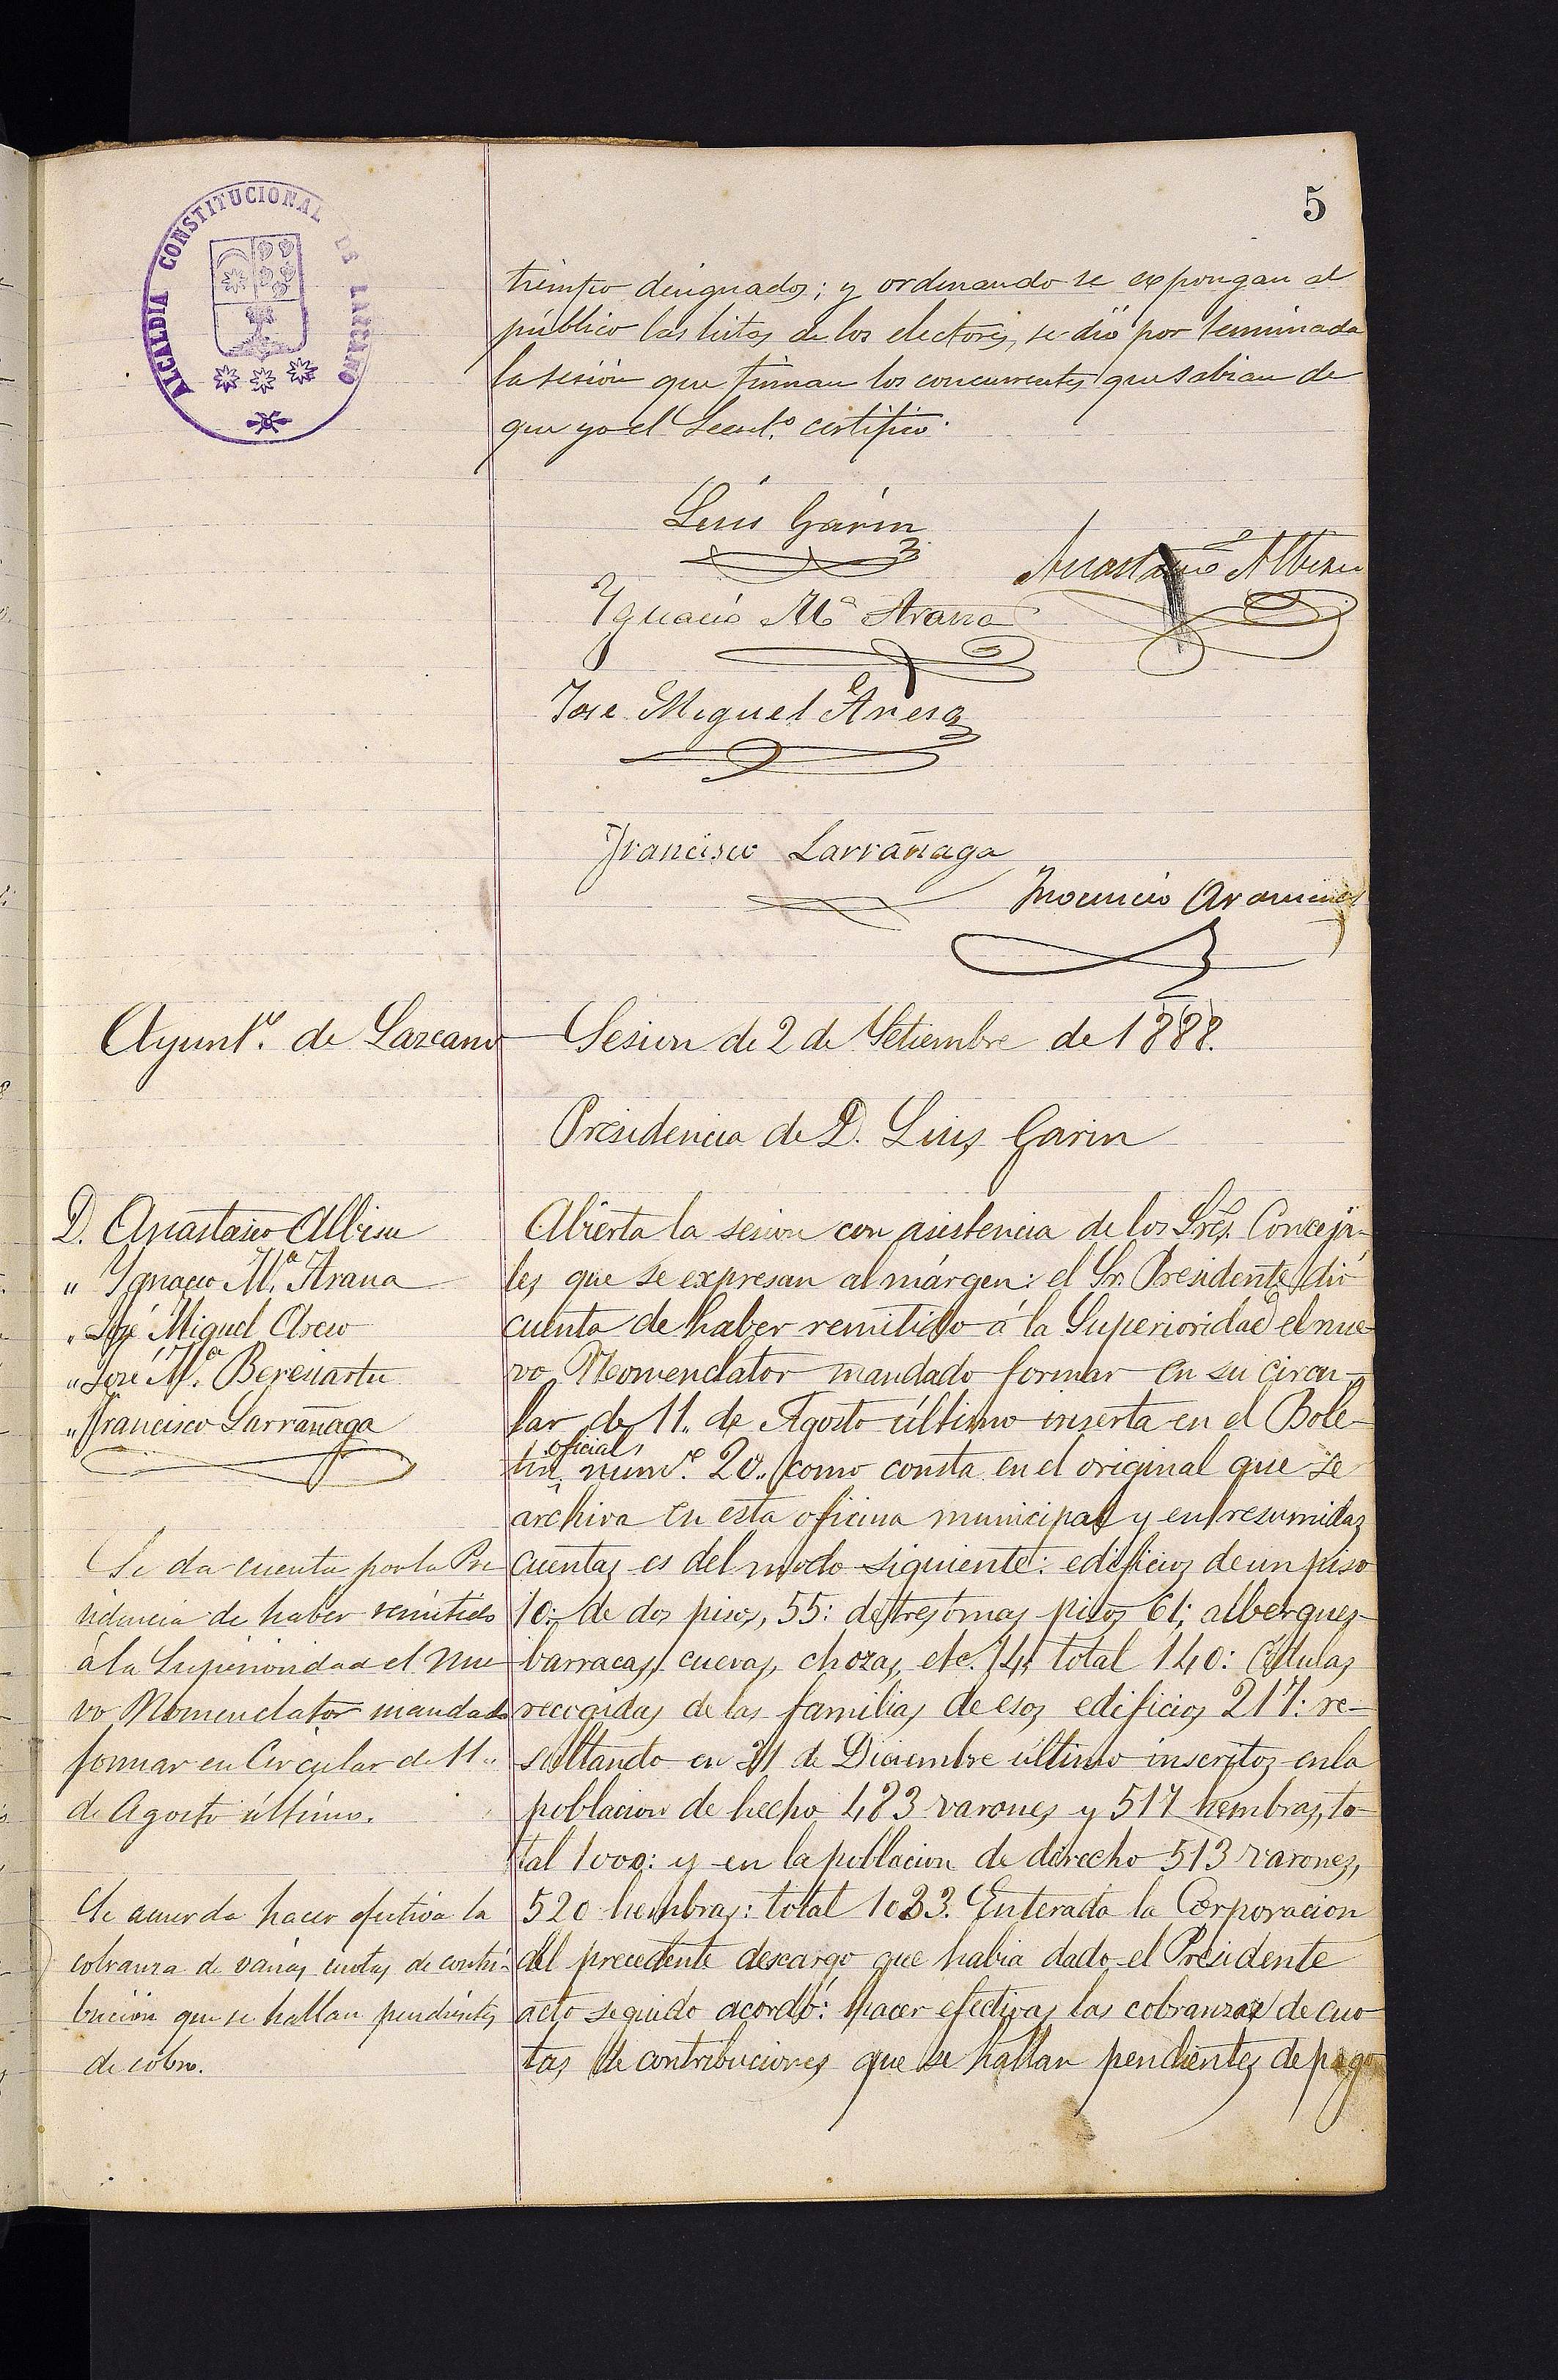 5
ALCALDIA CONSTITUCIONAL DE LAZCANO
tiempo designados; y ordenando se expongan al
público las listas de los electores, se dió por terminada
la sesión que firman los concurrentes que sabian de
que yo el Secret.º certifico.
Luis Garin
Anastasio Albisu
Ygnacio Mª Arana
José Miguel
Francisco Larrañaga
Inocencio
Ayunt.º de Lazcano
Sesion de 2 de Setiembre de 1888.
Presidencia de D. Luis Garin
D. Anastasio Albisu
" Ygnacio M.ª Arana
" José Miguel
" José M.ª Beresiartu
" Francisco Larrañaga
Abierta la sesion con asistencia de los Sres. Conceja-
les que se expresan al márgen: el Sr. Presidente dió
cuenta de haber remitido á la Superioridad el nue-
vo Nomenclator mandado formar en su circu-
lar de 11.. de Agosto último inserta en el Bole-
tin oficial, num.º 20.. como consta en el original que se
archiva en esta oficina municipal y en resumidas
cuentas es del modo siguiente: edificios de un piso
10: de dos pisos, 55: de tres ó mas pisos 61; albergues
barracas, cuevas, chozas, etc. 14, total 140: Cédulas
recogidas de las familias de esos edificios 217: re-
sultando en 31 de Diciembre último inscritos en la
poblacion de hecho 483 varones y 517 hembras, to-
tal 1000: y en la poblacion de derecho 513 varones,
520 hembras: total 1033. Enterada la Corporacion
del precedente descargo que habia dado el Presidente
acto seguido acordó: hacer efectivas las cobranzas de cuo-
tas de contribuciones que se hallan pendientes de pago
Se da cuenta por la Pre
sidencia de haber remitido
á la Superioridad el nue
vo Nomenclator mandado
formar en Circular de 11..
de Agosto último.
Se acuerda hacer efectiva la
cobranza de varias cuotas de contri-
bución que se hallan pendientes
de cobro.